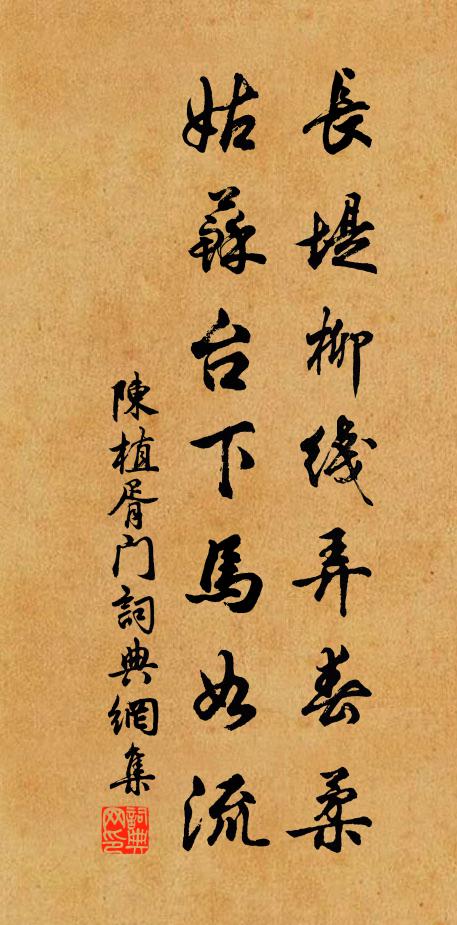 長堤柳线弄春柔
姑蘇台下馬如流
陳植胥门詞典網集
詞典网印